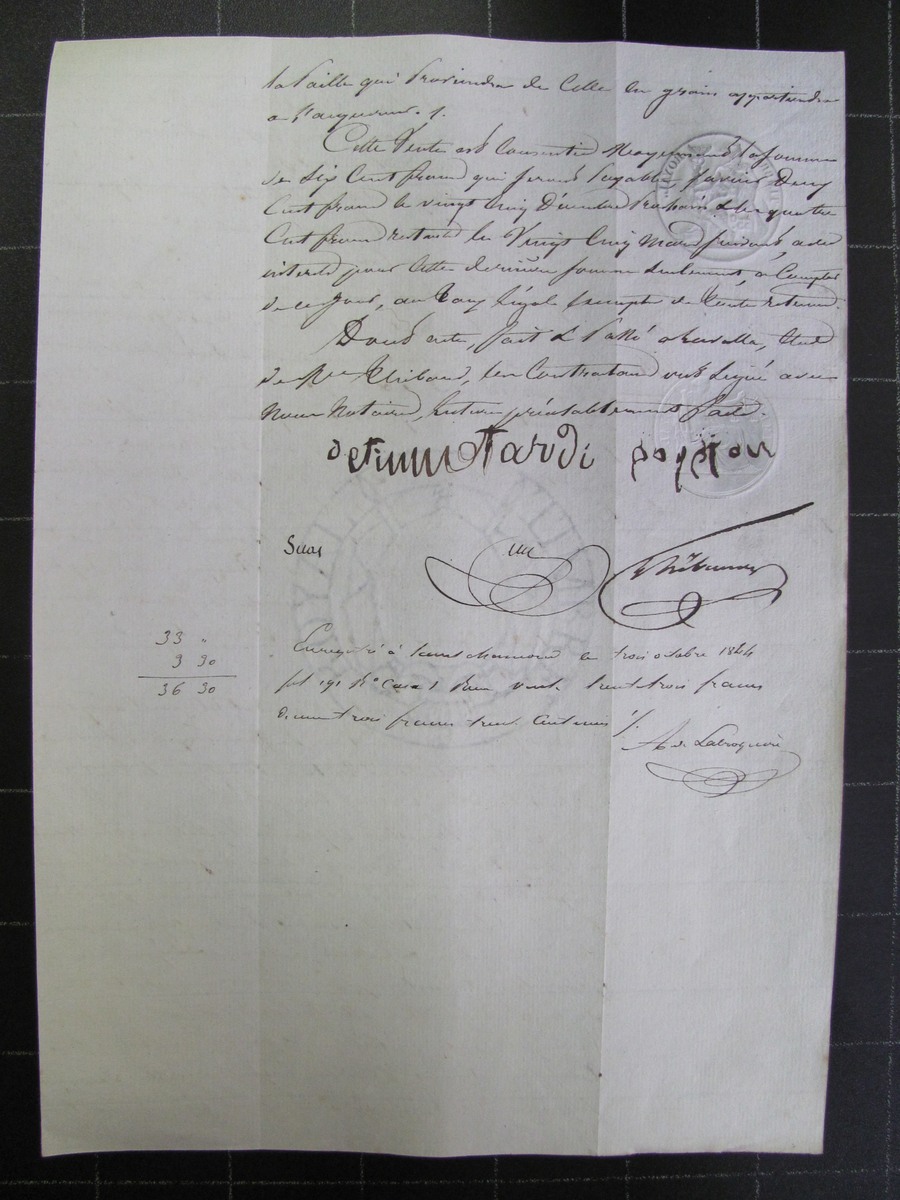 la Paille qui Proviendra de Celle en grain appartiendra
a l'acquereur ./.
Cette Vente est Consentie Moyennant la somme
de Six Cent franc qui seront Payable Savoir Deux
Cent franc le vingt Cinq Decembre Prochain & les quatre
Cent franc restant le Vingt Cinq Mars suivant, avec
interets pour Cette derniere somme seulement, a Compter
de ce Jour, au Taux légale exempte de toute retenue.
Dont acte, fait & Passé a, Etude
de Me Thibaud, les Contractant ont Signé avec
Nous Notaire, lecture préalablement faite.
Tardi poyeton
Thibaud
33 "
3 30
36 30
Enregistré à Saint chamond le trois octobre 1844
fol 191 Ro Case 1 Reçu vente trente trois francs
Decime trois francs trente Centimes ./.
A de Labroquère